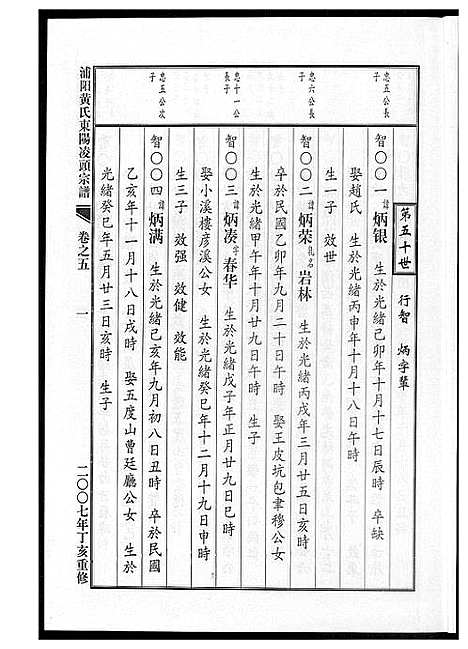 第五十世　行智　炳字輩
忠五公長子
智〇〇一　諱炳银　生於光緒己卯年十月十七日辰時　卒缺
娶趙氏　生於光緒丙申年十月十八日午時
生一子　效世
忠六公長子
智〇〇二　諱炳荣　乳名岩林　生於光緒丙戌年三月廿五日亥時
卒於民國乙卯年九月二十日午時　娶王皮坑包聿穆公女
生於光緒甲午年十月廿九日午時　生子
忠十一公長子
智〇〇三　諱炳凑　字春华　生於光緒戊子年正月廿九日巳時
娶小溪樓彦溪公女　生於光緒癸巳年十二月十九日申時
生三子　效强　效健　效能
忠五公次子
智〇〇四　諱炳满　生於光緒己亥年九月初八日丑時　卒於民國
乙亥年十一月十八日戌時　娶五度山曹廷廳公女　生於
光緒癸巳年五月廿三日亥時　生子
浦阳黄氏東陽凌頭宗譜　卷之五　一　二〇〇七年丁亥重修